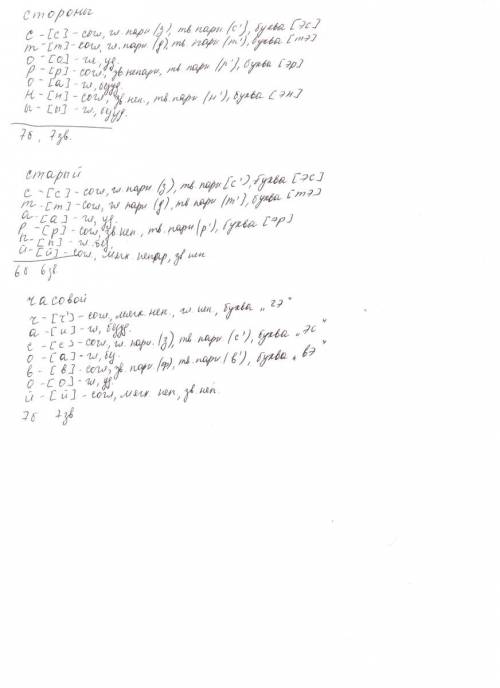 стороны
с - [с] - согл, гл. парн (з), тв парн (с'), буква [эс]
т - [т] - согл, гл. парн (д), тв парн (т'), буква [тэ]
о - [о] - гл, уд.
р - [р] - согл, зв непарн, тв. парн (р'), буква [эр]
о - [а] - гл, безуд.
н - [н] - согл, зв. неп., тв. парн (н'), буква [эн]
ы - [ы] - гл, безуд.
7б, 7зв.
старый
с - [с] - согл, гл. парн (з), тв парн [с'), буква [эс]
т - [т] - согл, гл парн (д), тв парн (т'), буква [тэ]
а - [а] - гл, уд.
р - [р] - согл, зв неп., тв. парн (р'), буква [эр]
й - [й] - согл, мягк непар, зв неп
6б 6зв
часовой
ч - [ч'] - согл, мягк неп., гл. неп, буква „чэ"
а - [и] - гл, безуд.
с - [с] - согл, гл. парн. (з), тв парн (с'), буква „эс"
о - [а] - гл, бу.
в - [в] - согл, зв. парн (ф), тв. парн (в'), буква „вэ"
о - [о] - гл, уд.
й - [й] - согл, мягк неп, зв. неп.
7б 7зв